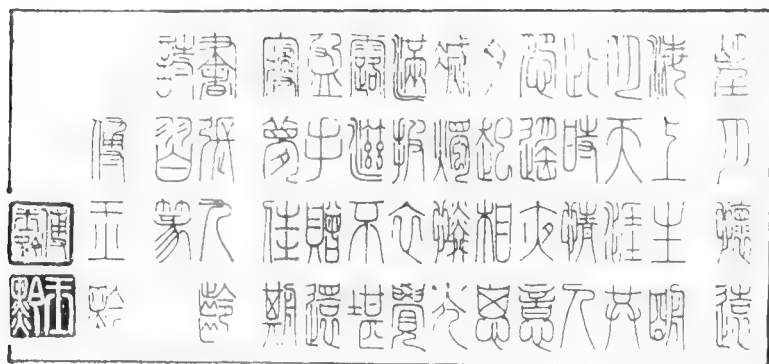 望月懷遠
海上生明
月天涯共
此時情人
怨遙夜竟
夕起相思
滅燭憐光
滿披衣覺
露滋不堪
盈手贈還
寢夢佳期
書張九齡
詩習篆
傅玉黔
傅玉黔
玉黔